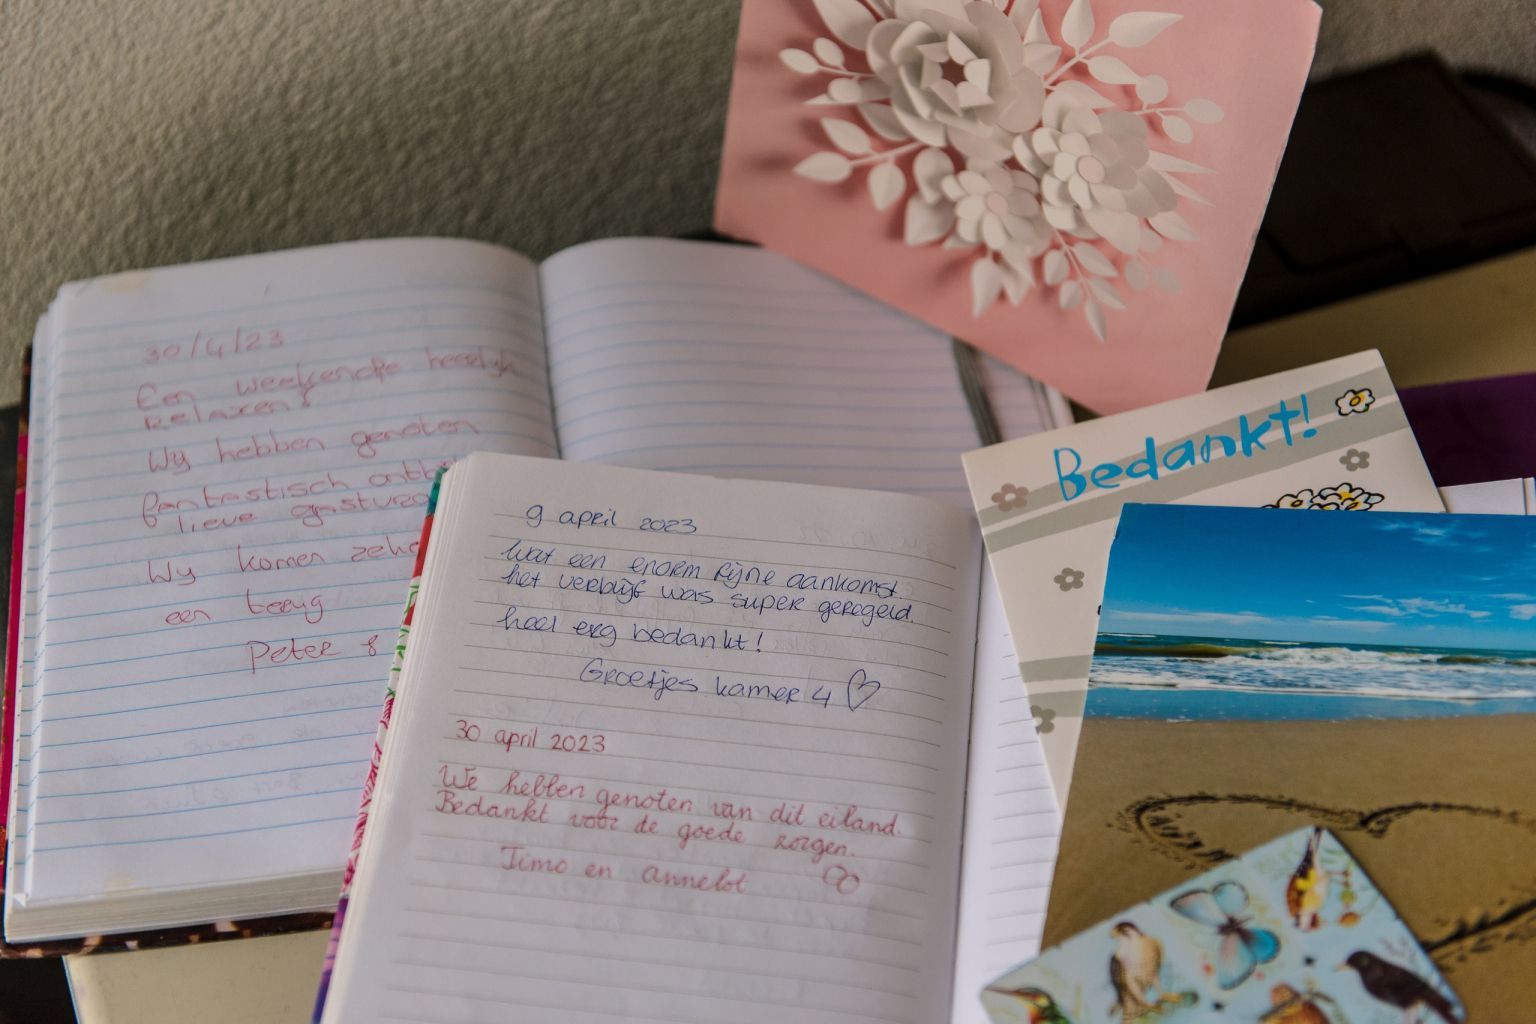 30/4/23
Een weekendje heerlijk
relaxen!
Wy hebben genoten
fantastisch
lieve
Wy komen
een terug
Peter &
9 april 2023
wat een enorm fijne aankomst.
het verblijf was super geregeld.
heel erg bedankt!
Groetjes kamer 4 ♡
30 april 2023
We hebben genoten van dit eiland.
Bedankt voor de goede zorgen.
Timo en Annelot
Bedankt!